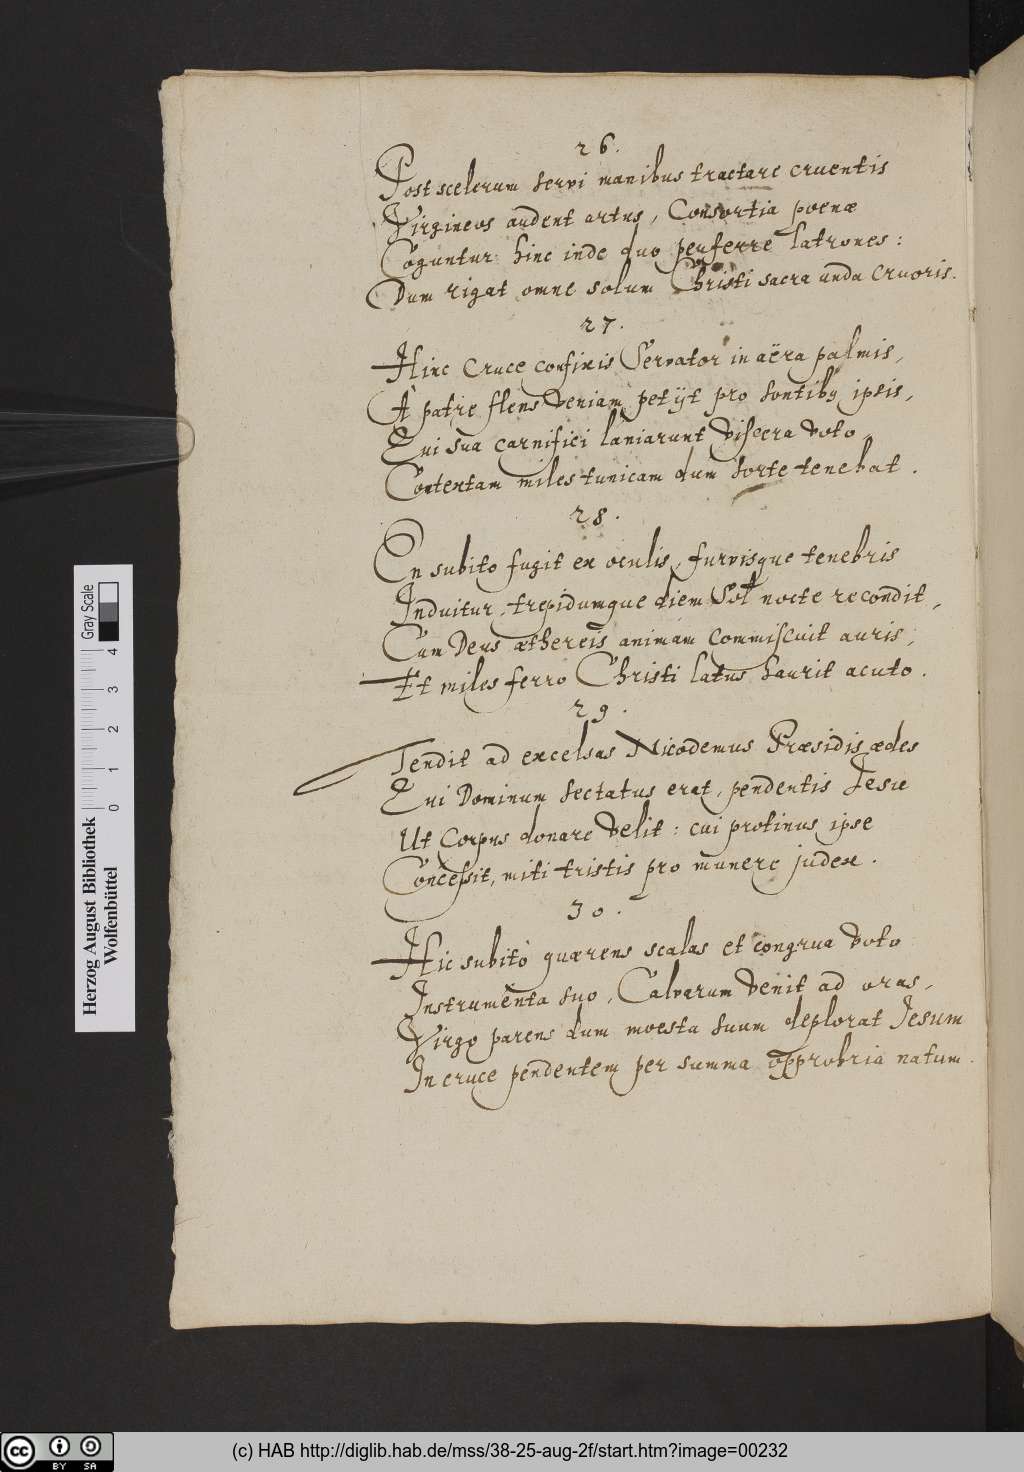 26.
Post scelerum servi manibus tractare cruentis
Virgineos audent artus, Consortia poenæ
Coguntur hinc inde duo perferre latrones:
Dum rigat omne solum Christi sacra unda cruoris.
27.
Hinc Cruce confixis Servator in aëra palmis,
À patre flens veniam petijt pro sontibq ipsis,
Qui sua carnifici laniarunt viscera voto
Contextam miles tunicam dum sorte tenebat.
28.
En subito fugit ex oculis, furvisque tenebris
Induitur, trepidumque diem Sol nocte recondit,
Cum Deus æthereis animam commiscuit auris,
Et miles ferro Christi latus haurit acuto.
29.
Tendit ad excelsas Nicodemus Præsidis ædes
Qui Dominum sectatus erat, pendentis Jesu
Ut Corpus donare velit: cui protinus ipse
Concessit, miti tristis pro munere judex.
30.
Hic subitò quærens scalas et congrua voto
Instrumenta suo, Calvarum venit ad oras,
Virgo parens dum moesta suum deplorat Jesum
In cruce pendentem per summa opprobria natum.
Herzog August Bibliothek
Wolfenbüttel
0 1 2 3 4
Gray Scale
cc BY SA
(c) HAB http://diglib.hab.de/mss/38-25-aug-2f/start.htm?image=00232